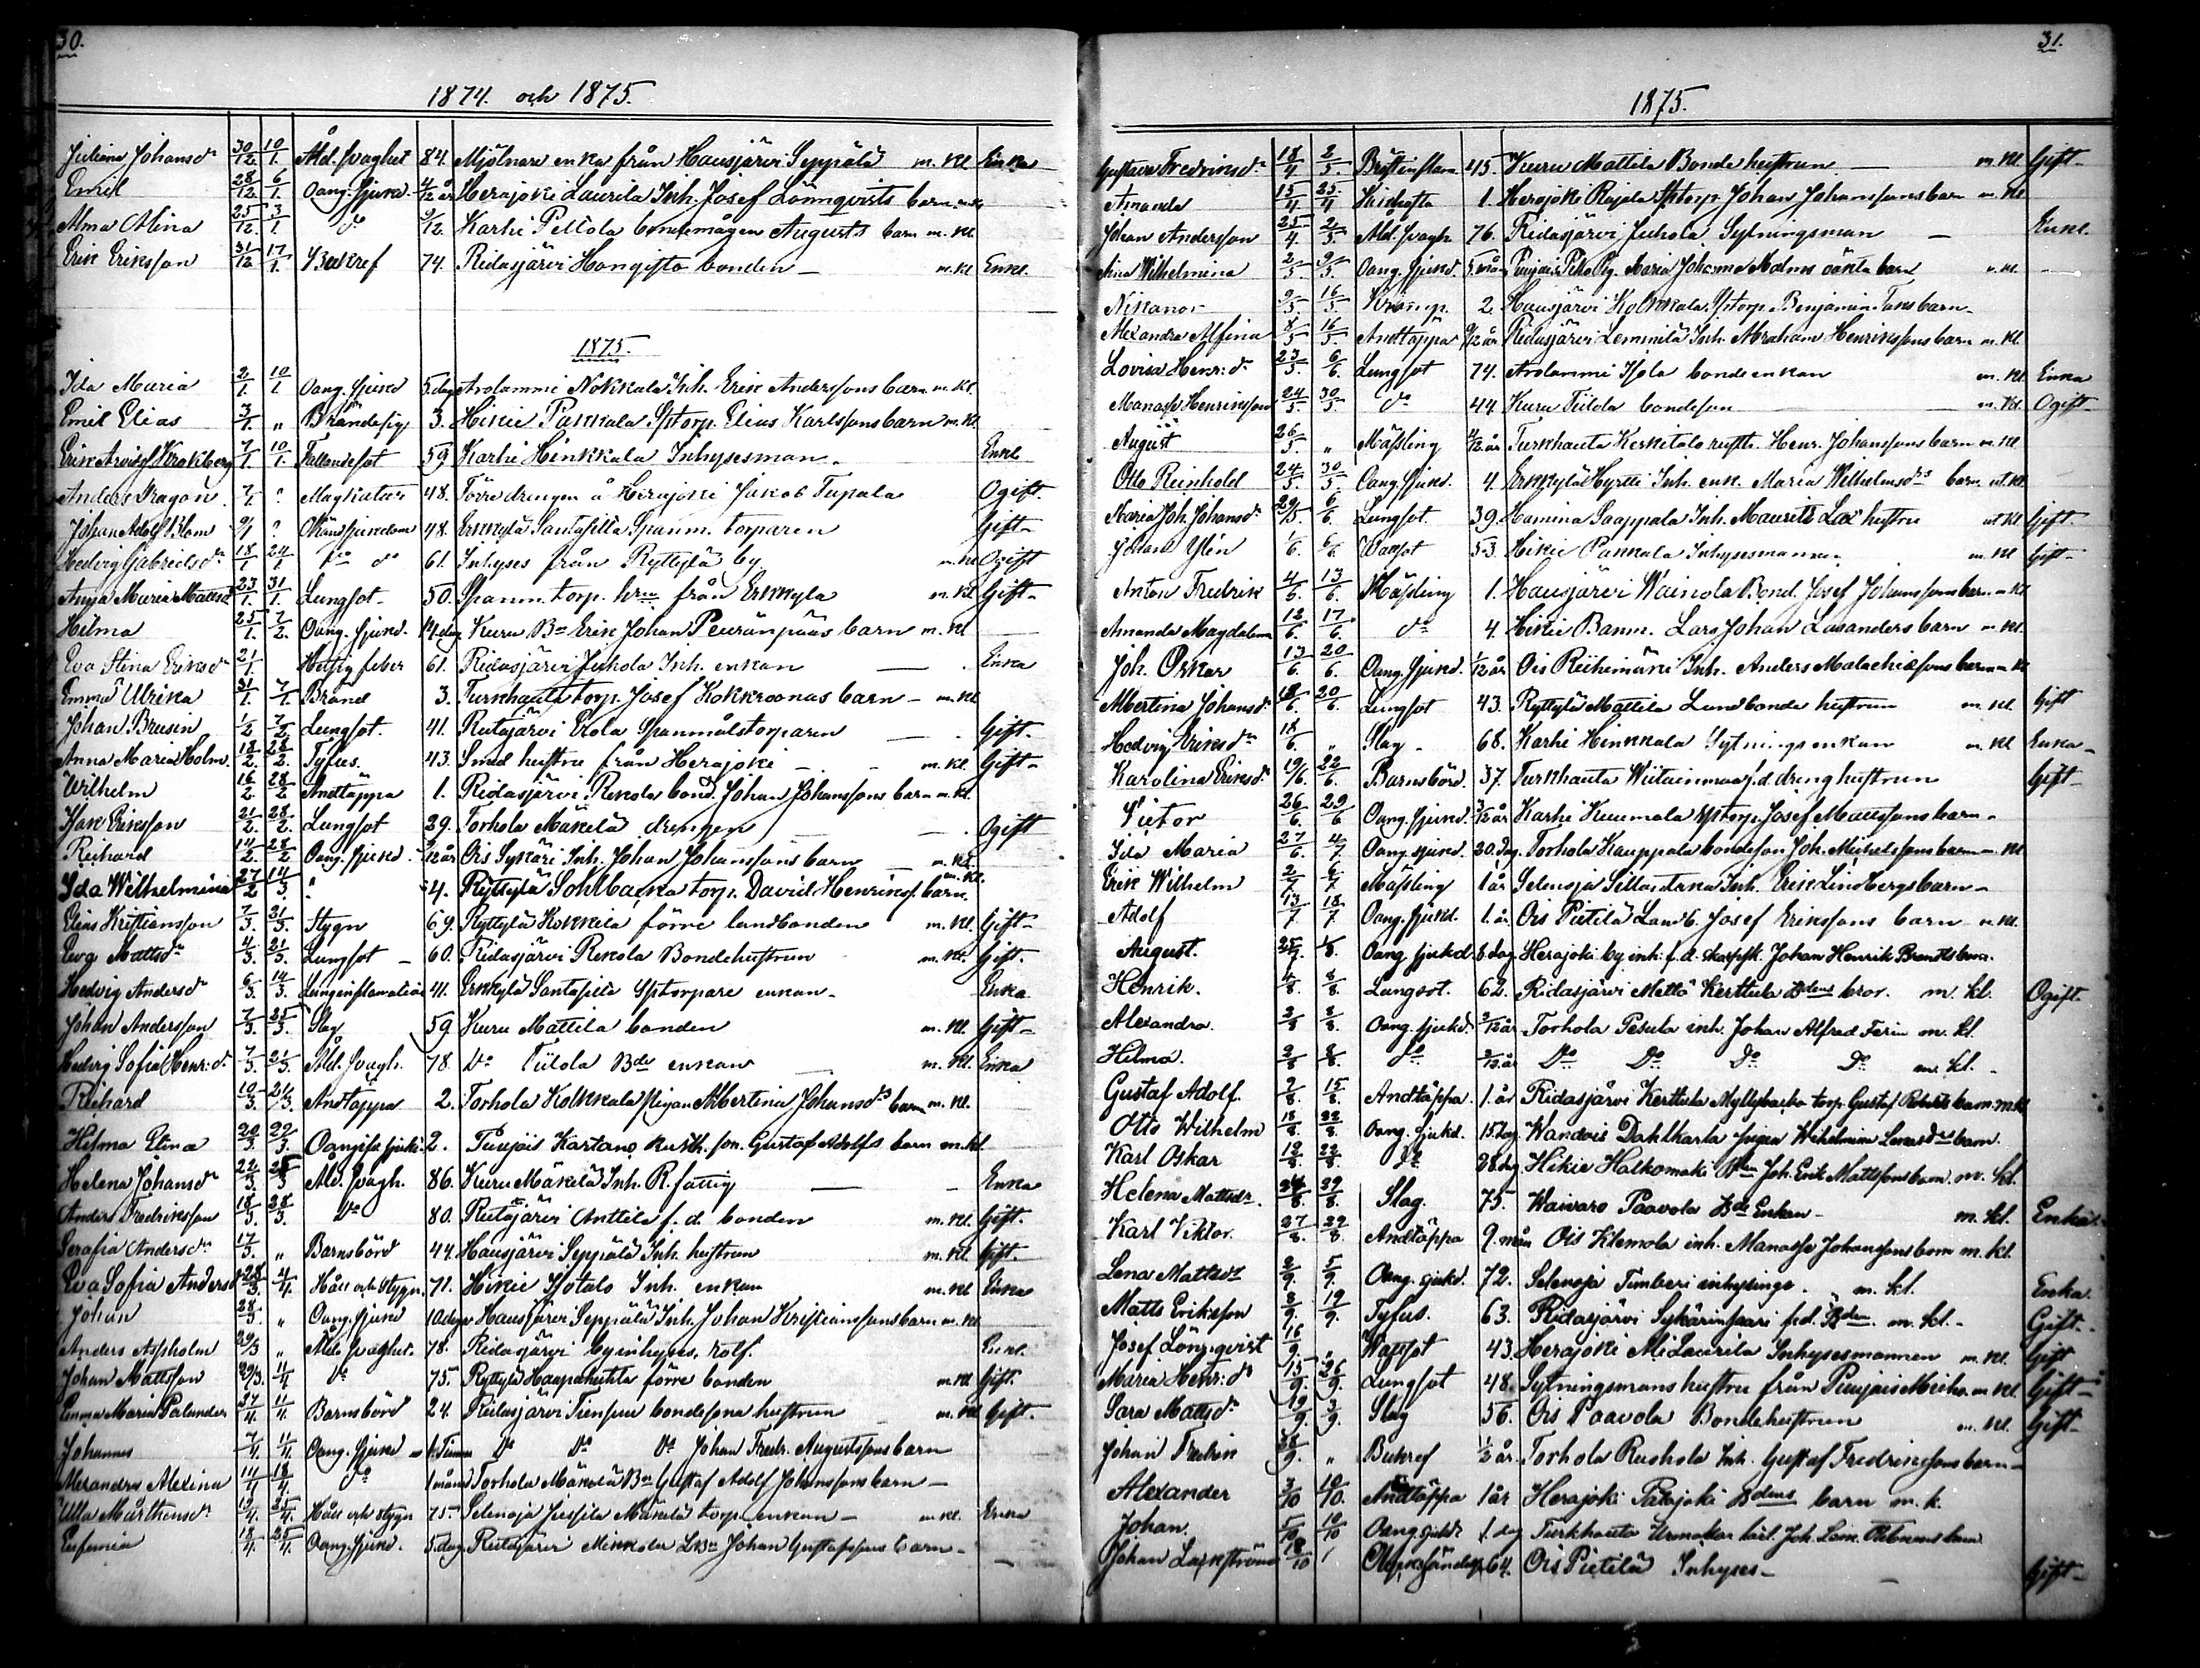 30.
1874. och 1875.
Juliana Johansdr 30/12 10/1 Åld. svaghet 84. Mjölnare enka från Hausjärvi Seppälä m. kl. Enka
Emil 28/12 6/1 Oang. sjukd. Herajoki Laurila Inh. Josef Lönnqvists barn
Alma Alina 25/12 3/1 do Karhi Peltola bondemågen Augusts barn m. kl.
Erik Eriksson 31/12 17/1 74. Ridasjärvi Hongisto bonden – m. kl. Enkl.
1875.
Ida Maria 2/1 10/1 Oang. sjukd 5 dag Arolammi Nokkala Inh. Erik Anderssons barn m. kl.
Emil Elias 3/1 „ 3. Hikie Pakkala Sptorp. Elias Karlssons barn m. kl.
7/1 10/1 Fallandesot 59 Karhi Hinkkala Inhysesman. Enkl
Anders 7/1 ? Magkatarr 48. Förre drengen å Herajoki Jakob Tupala Ogift.
Johan Adolf Blom 9/1 ? Okänd sjukdom 48. Erkkylä Santasilta Spanm. torparen Gift –
Hedvig Gabrielsdr 18/1 24/1 do do 61. Inhyses från Ryttylä by m. kl Ogift
Anna Maria Mattsdr 23/1 31/1 Lungsot – 50. Spanm. torp. hru från Erkkylä m. kl Gift –
Helma 25/1 7/2 Oang. sjukd. 14 dag Kuru Bn Erik Johan Peuränpääs barn m. kl
Eva Stina Eriksdr 21/1 feber 61. Ridasjärvi Juhola Inh. enkan – Enka
Emma Ulrika 31/1 7/1 Bränd 3. Turkhauta torp. Josef Kokkroonas barn – m. kl
Johan Brusin 1/2 7/2 Lungsot. 41. Rutajärvi Erola Spanmålstorparen – Gift.
Anna Maria Holm. 18/2 28/2 Tyfus. 43. Smed hustru från Herajoki – m. kl. Gift –
Wilhelm 16/2 28/2 Andtäppa 1. Ridasjärvi Rekola bond. Johan Johanssons barn m. kl.
Isak Eriksson 21/2 28/2 Lungsot 29. Torhola Mäkelä drengen – Ogift
Richard 14/2 28/2 Oang. sjukd. Ois Sykäri Inh. Johan Johanssons barn – m. kl.
Ida Wilhelmina 27/2 14/3 „ 4. Ryttylä Sohlbacka torp. David Henrikss. barn m. kl.
Elias Kristiansson 7/3 21/3 Stygn 69. Ryttylä Kokkila förre landbonden m. kl. Gift –
Eva Mattsdr 4/3 21/3 Lungsot – 60. Ridasjärvi Rekola Bondehustrun m. kl. Gift.
Hedvig Andersdr 6/3 14/3 Lunginflamation 41. Erkkylä Santasilta Sptorpare enkan – Enka
Johan Andersson 7/3 25/3 Slag 59 Kuru Mattila bonden m. kl. Gift –
Hedvig Sofia Henr:dr 7/3 21/3 Åld. svagh. 78. Do Tiilola Bde enkan – m. kl. Enka
Richard 10/3 21/3 Andtäppa 2. Torhola Kolkkala pigan Albertina Johansdrs barn m. kl.
Hilma Elina 20/3 29/3 2. Puujais Kartano Gustaf Adolfs barn m. kl.
Helena Johansdr 22/3 25/3 Åld. svagh. 86. Kuru Mäkelä Inh. R. fattig – Enka
Anders Fredriksson 18/3 28/3 Do 80. Rutajärvi Anttila f. d. bonden m. kl. Gift.
Serafia Andersdr 17/3 „ Barnsbörd 44. Hausjärvi Seppälä Inh. hustrun m. kl Gift
Eva Sofia Andersdr 28/3 4/4 Håll och stygn 71. Hikie Isotalo Inh. enkan m. kl Enka
Johan 28/3 „ Oang. sjukd 10 dagar Hausjärvi Seppälä Inh. Johan Kristianssons barn m. kl
Anders Aspholm 29/3 „ Åld. svaghet. 78. Ridasjärvi by inhyses. Enkl.
Johan Mattsson 29/3 11/4 do 75. Ryttylä Haapahuhta förre bonden m. kl Gift.
Emma Maria Palander 11/4 Barnsbörd 24. Ridasjärvi Tiensuu bondesona hustrun m. kl Gift.
Johannes 7/4 11/4 Oang. sjukd Do Do Do Johan Fredr. Augustssons barn
Alexandra Alexina 14/4 18/4 do 1 månad Torhola Mäkelä Bn Gustaf Adolf Johanssons barn –
Ulla Mårtensdr 19/4 25/4 Håll och stygn 75. Selenoja Jussila Mäkelä torp. enkan – m. kl. Enka
Eufemia 18/4 25/4 Oang. sjukd. 5 dag Rutajärvi Mikkola LBn Johan Gustafssons barn –
31.
1875.
Gustava Fredriksdr 18/4 2/5 Bröstinflam 45. Kuru Mattila Bonde hustrun – m. kl. Gift –
Amanda 15/4 25/4 Kikhosta 1. Herajoki Rajala Sptorp. Johan Johanssons barn m. kl
Johan Andersson 25/4 2/5 Åld. svagh. 76. Ridasjärvi Juhola Sytningsman – Enkl.
Aina Wilhelmina 2/5 9/5 Oang. sjukd. 5 mån Puujais Pelto Pig. Maria Johanna Malms oäkta barn m. kl.
Nikanor 9/5 16/5 Kramp. 2. Hausjärvi Kolkkala Sptorp. Benjamin Taks barn –
Alexandra Alfina 8/5 16/5 Andtäppa 9/12 år Ridasjärvi Lemmilä Inh. Abraham Henrikssons barn m. kl.
Lovisa Henr:dr 23/5 6/6 Lungsot 74. Arolammi Isola bonde enkan m. kl. Enka
Manasse Henriksson 24/5 30/5 do 44. Kuru Tiilola bondeson – m. kl Ogift –
August 26/5 „ Mässling Turkhauta Kerkitalo rustt. Henr. Johanssons barn m. kl
Otto Reinhold 24/5 30/5 Oang. sjukd. 4. Erkkylä Hyrtti Inh. enk. Maria Wilhelmsdrs barn. ut. kl.
Maria Joh. Johansdr 29/5 6/6 Lungsot. 39. Hamina Saappala Inh. Maurits Lax hustru ut kl Gift.
Johan Ylén 1/6 6/6 Wattsot 53. Hikie Pakkala Inhysesmannen. m. kl Gift –
Anton Fredrik 4/6 13/6 Mässling 1. Hausjärvi Wainiola Bond. Josef Johanssons barn m. kl
Amanda Magdalena 12/6 17/6 do 4. Hikie Banm. Lars Johan Lasanders barn m. kl.
Joh. Oskar 13/6 20/6 Oang. sjukd. 1/12 år Ois Riihimäki Inh. Anders Malachiessons barn m. kl
Albertina Johansdr 18/6 20/6 Lungsot 43. Ryttylä Mattila Landbonde hustrun m. kl. Gift
Hedvig Eriksdr 18/6 „ Slag – 68. Karhi Hinkkala Sytnings enkan m. kl Enka –
Karolina Eriksdr 19/6 22/6 Barnsbörd. 37. Turkhauta f.d. dreng hustrun Gift –
Victor 26/6 29/6 Oang. sjukd. 3/12 år Karhi Kuumola Sptorp. Josef Mattssons barn –
Ida Maria 27/6 4/7 Oang. sjukd. 20 dag. Torhola Kauppala bondeson Joh. Mickelssons barn – m. kl
Erik Wilhelm 2/7 6/7 Mässling 1 år Selenoja Inh. Erik Lindbergs barn –
Adolf 13/7 18/7 Oang. sjukd. 1. år Ois Pietilä Landb. Josef Erikssons barn – m. kl.
August. 25/7 1/8 Oang sjukd 8 dag. Herajoki by inh. f. d. Johan Henrik barn.
Henrik. 4/8 8/8 Lungsot. 62. Ridasjärvi Mettö Kerttula Bdens bror. m. kl. Ogift.
Alexandra. 2/8 8/8 Oang. sjukd. 3/12 år Torhola Pesula inh. Johan Alfred Ferin m. kl.
Helma. 2/8 8/8 do 3/12 år Do Do Do Do m. kl. –
Gustaf Adolf. 9/8 15/8 Andtäppa. 1. år Ridasjärvi Kerttula Myllybacka torp. Gustaf barn m. kl
Otto Wilhelm 18/8 22/8 Oang. sjukd. 15 dag. Wandois Dahlkarla pigan Wilhelmina barn.
Karl Oskar 12/8 22/8 do 28 dag. Hikie Halkomäki Joh. Erik Mattssons barn m. kl.
Helena Mattsdr. 24/8 29/8 Slag. 75. Waivaro Paavola Bde Enkan – m. kl. Enka.
Karl Viktor. 27/8 29/8 Andtäppa 9. mån Ois Klemola inh. Manasse Johanssons barn m. kl.
Lena Mattsdr 2/9 5/9 Oang. sjukd. 72. Selenoja Timberi inhysinge. m. kl. Enka.
Matts Eriksson 8/9 19/9 Tyfus. 63. Ridasjärvi f.d. Bden m. kl. – Gift.
Josef Lönnqvist 16/9 „ Wattsot 43. Herajoki Laurila Inhysesmannen m. kl. Gift
Maria Henr:dr 15/9 26/9 Lungsot 48. Sytningsmans hustru från Puujais m. kl. Gift –
Sara Mattsdr 19/9 Slag 56. Ois Paavola Bondehustrun m. kl. Gift –
Johan Fredrik 28/9 „ Bukref 1/2 år. Torhola Ruohola Inh. Gustaf Fredrikssons barn –
Alexander 3/10 10/10 Andtäppa 1 år Herajoki Patajoki Bdens barn m. k.
Johan. 5/10 10/10 Oang sjukd. 1. dag Turkhauta barn
Johan 18/10 64. Ois Pietilä Inhyses – Gift –